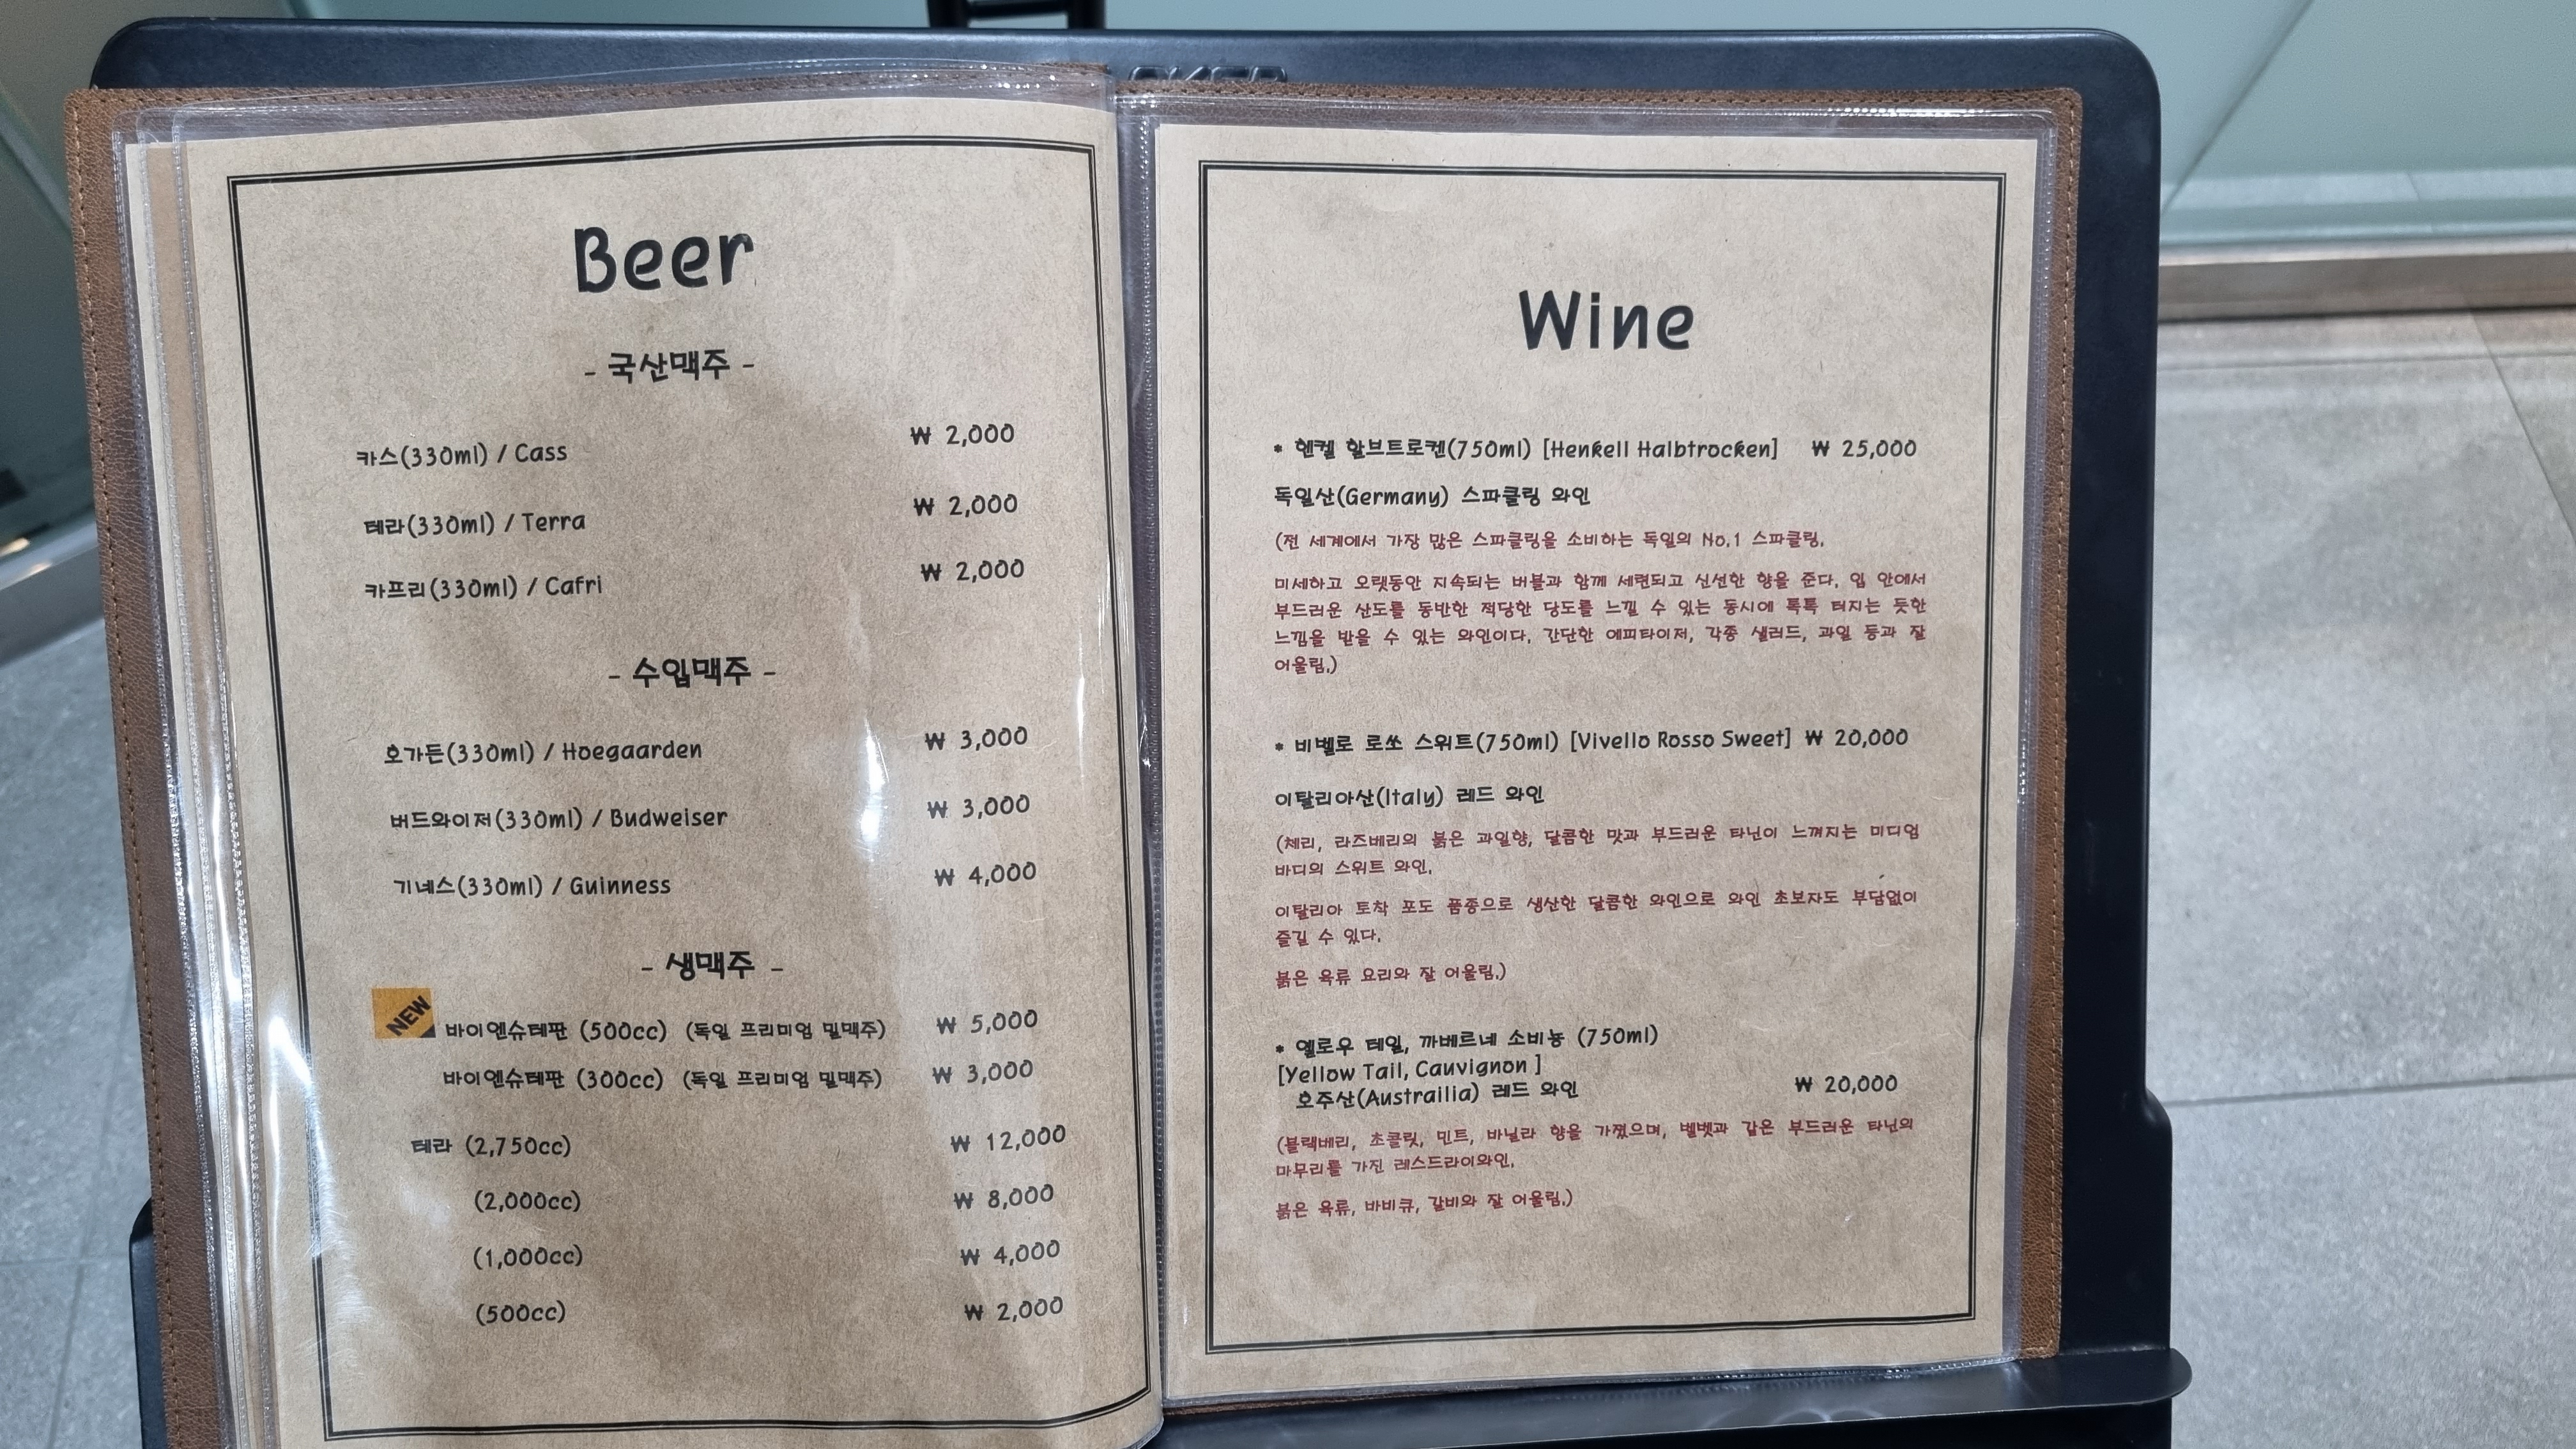 Beer
- 국산맥주 -
카스(330ml) / Cass ₩ 2,000
테라(330ml) / Terra ₩ 2,000
카프리(330ml) / Cafri ₩ 2,000
- 수입맥주 -
호가든(330ml) / Hoegaarden ₩ 3,000
버드와이저(330ml) / Budweiser ₩ 3,000
기네스(330ml) / Guinness ₩ 4,000
- 생맥주 -
NEW
바이엔슈테판 (500cc) (독일 프리미엄 밀맥주) ₩ 5,000
바이엔슈테판 (300cc) (독일 프리미엄 밀맥주) ₩ 3,000
테라 (2,750cc) ₩ 12,000
(2,000cc) ₩ 8,000
(1,000cc) ₩ 4,000
(500cc) ₩ 2,000
Wine
* 헨켈 할브트로켄(750ml) [Henkell Halbtrocken] ₩ 25,000
독일산(Germany) 스파클링 와인
(전 세계에서 가장 많은 스파클링을 소비하는 독일의 No.1 스파클링.
미세하고 오랫동안 지속되는 버블과 함께 세련되고 신선한 향을 준다. 입 안에서
부드러운 산도를 동반한 적당한 당도를 느낄 수 있는 동시에 톡톡 터지는 듯한
느낌을 받을 수 있는 와인이다. 간단한 에피타이저, 각종 샐러드, 과일 등과 잘
어울림.)
* 비벨로 로쏘 스위트(750ml) [Vivello Rosso Sweet] ₩ 20,000
이탈리아산(Italy) 레드 와인
(체리, 라즈베리의 붉은 과일향, 달콤한 맛과 부드러운 타닌이 느껴지는 미디엄
바디의 스위트 와인.
이탈리아 토착 포도 품종으로 생산한 달콤한 와인으로 와인 초보자도 부담없이
즐길 수 있다.
붉은 육류 요리와 잘 어울림.)
* 옐로우 테일, 까베르네 소비뇽 (750ml)
[Yellow Tail, Cauvignon ]
호주산(Austrailia) 레드 와인 ₩ 20,000
(블랙베리, 초콜릿, 민트, 바닐라 향을 가졌으며, 벨벳과 같은 부드러운 타닌의
마무리를 가진 레스드라이와인.
붉은 육류, 바비큐, 갈비와 잘 어울림.)